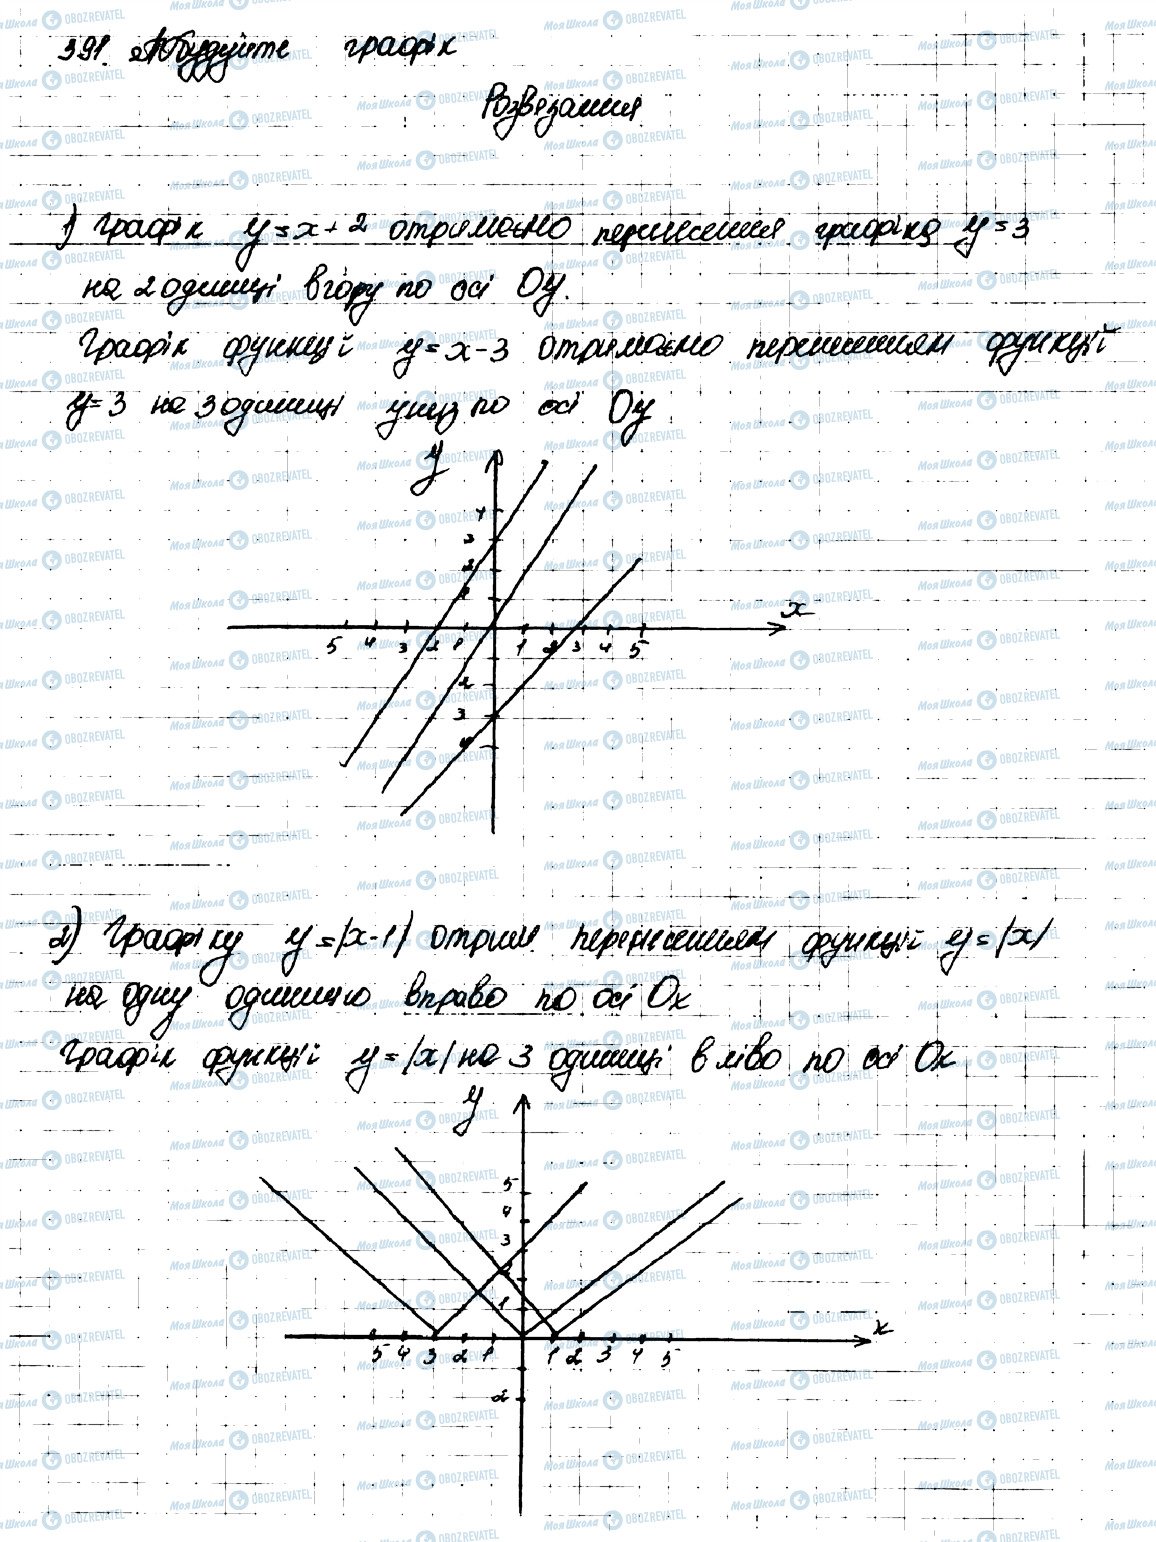 391. Побудуйте графік
Розв'язання
1) Графік y = x + 2 отримаємо перенесення графіка y = 3
на 2 одиниці вгору по осі Oy.
Графік функції y = x - 3 отримаємо перенесенням функції
y = 3 на 3 одиниці униз по осі Oy
y
4
3
2
1
x
5 4 3 2 1 1 2 3 4 5
2
3
4
2) Графіку y = |x - 1| отрим. перенесенням функції y = |x|
на одну одиницю вправо по осі Ox
Графік функції y = |x| на 3 одиниці вліво по осі Ox
y
5
4
3
2
1
x
5 4 3 2 1 1 2 3 4 5
2
Моя Школа OBOZREVATEL